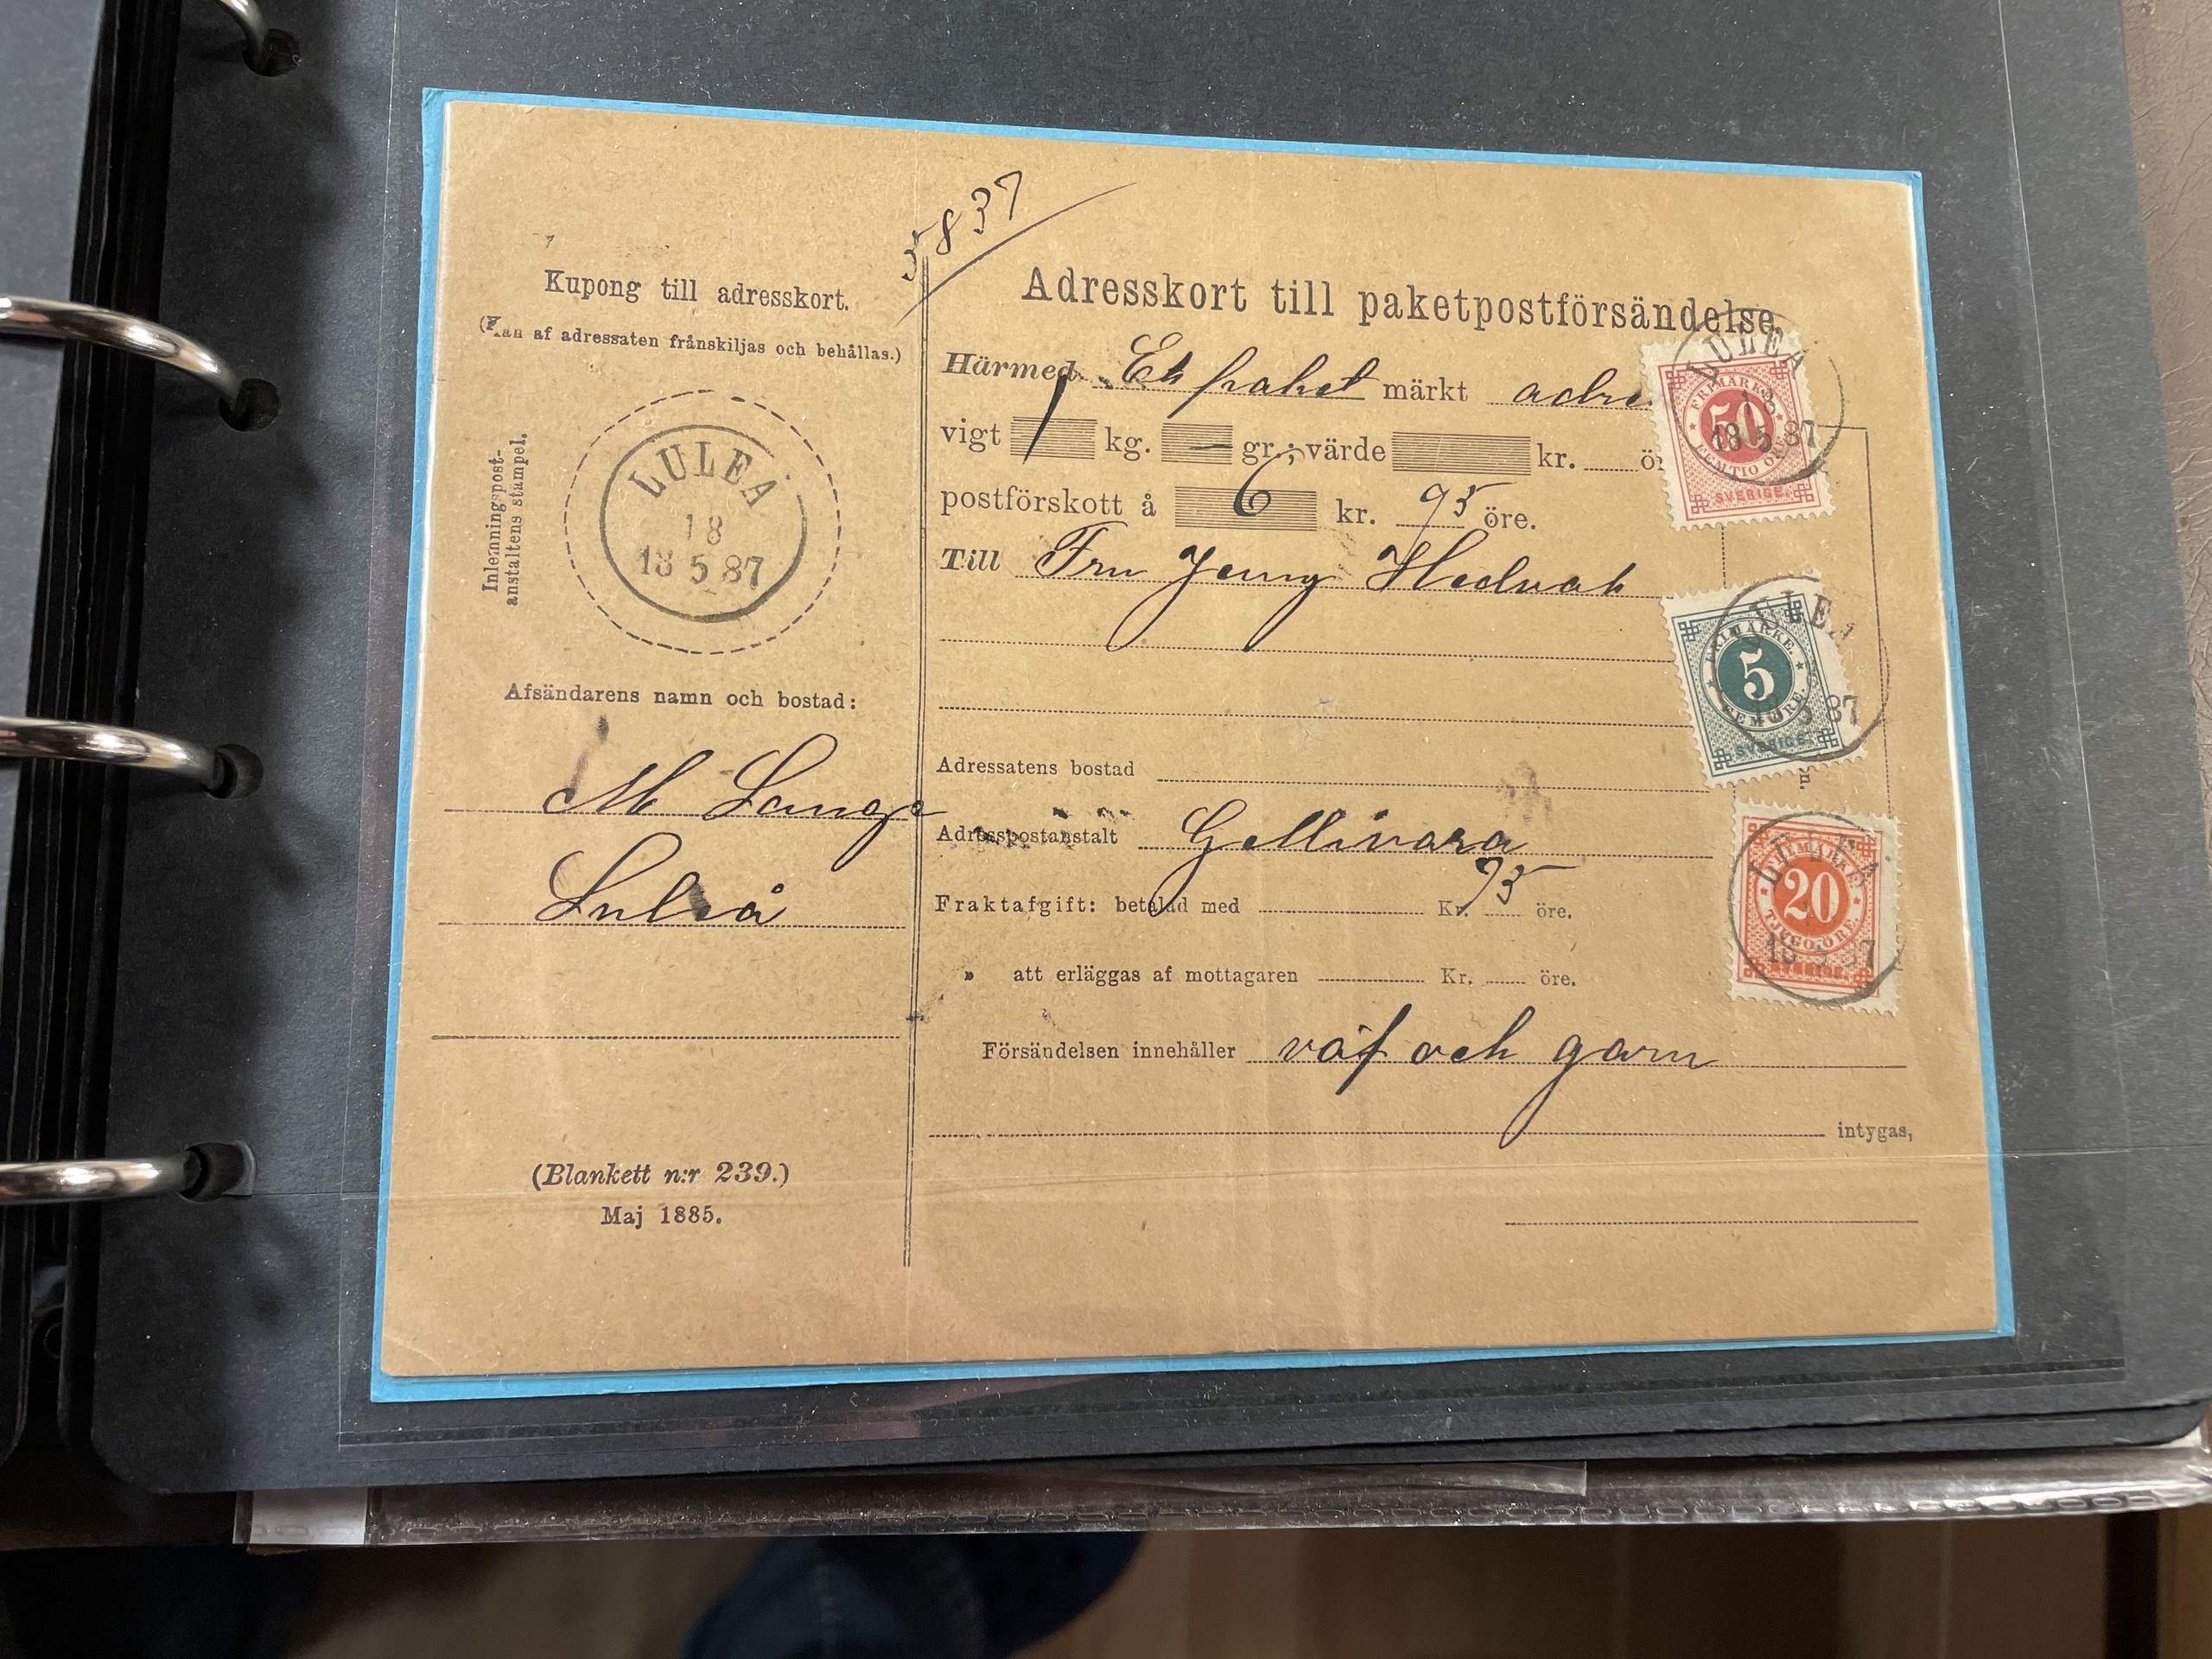 5837
Kupong till adresskort.
(Kan af adressaten frånskiljas och behållas.)
Inlemningspost-
anstaltens stämpel.
LULEÅ
18
18 5 87
Afsändarens namn och bostad:
M Lange
Luleå
(Blankett n:r 239.)
Maj 1885.
Adresskort till paketpostförsändelse
Härmed Ett paket märkt adr.
vigt 1 kg. — gr.; värde kr. ör
postförskott å 6 kr. 95 öre.
Till Fru Jenny
Adressatens bostad
Adresspostanstalt Gellivara
Fraktafgift: betalad med Kr. 75 öre.
» att erläggas af mottagaren Kr. öre.
Försändelsen innehåller väf och garn
intygas,
LULEÅ
18
18 5 87
FRIMÄRKE
50
FEMTIO ÖRE
SVERIGE.
LULEÅ
87
FRIMÄRKE.
5
FEM ÖRE.
SVERIGE.
n.
LULEÅ
18 5 87
FRIMÄRKE
20
TJUGO ÖRE
SVERIGE.